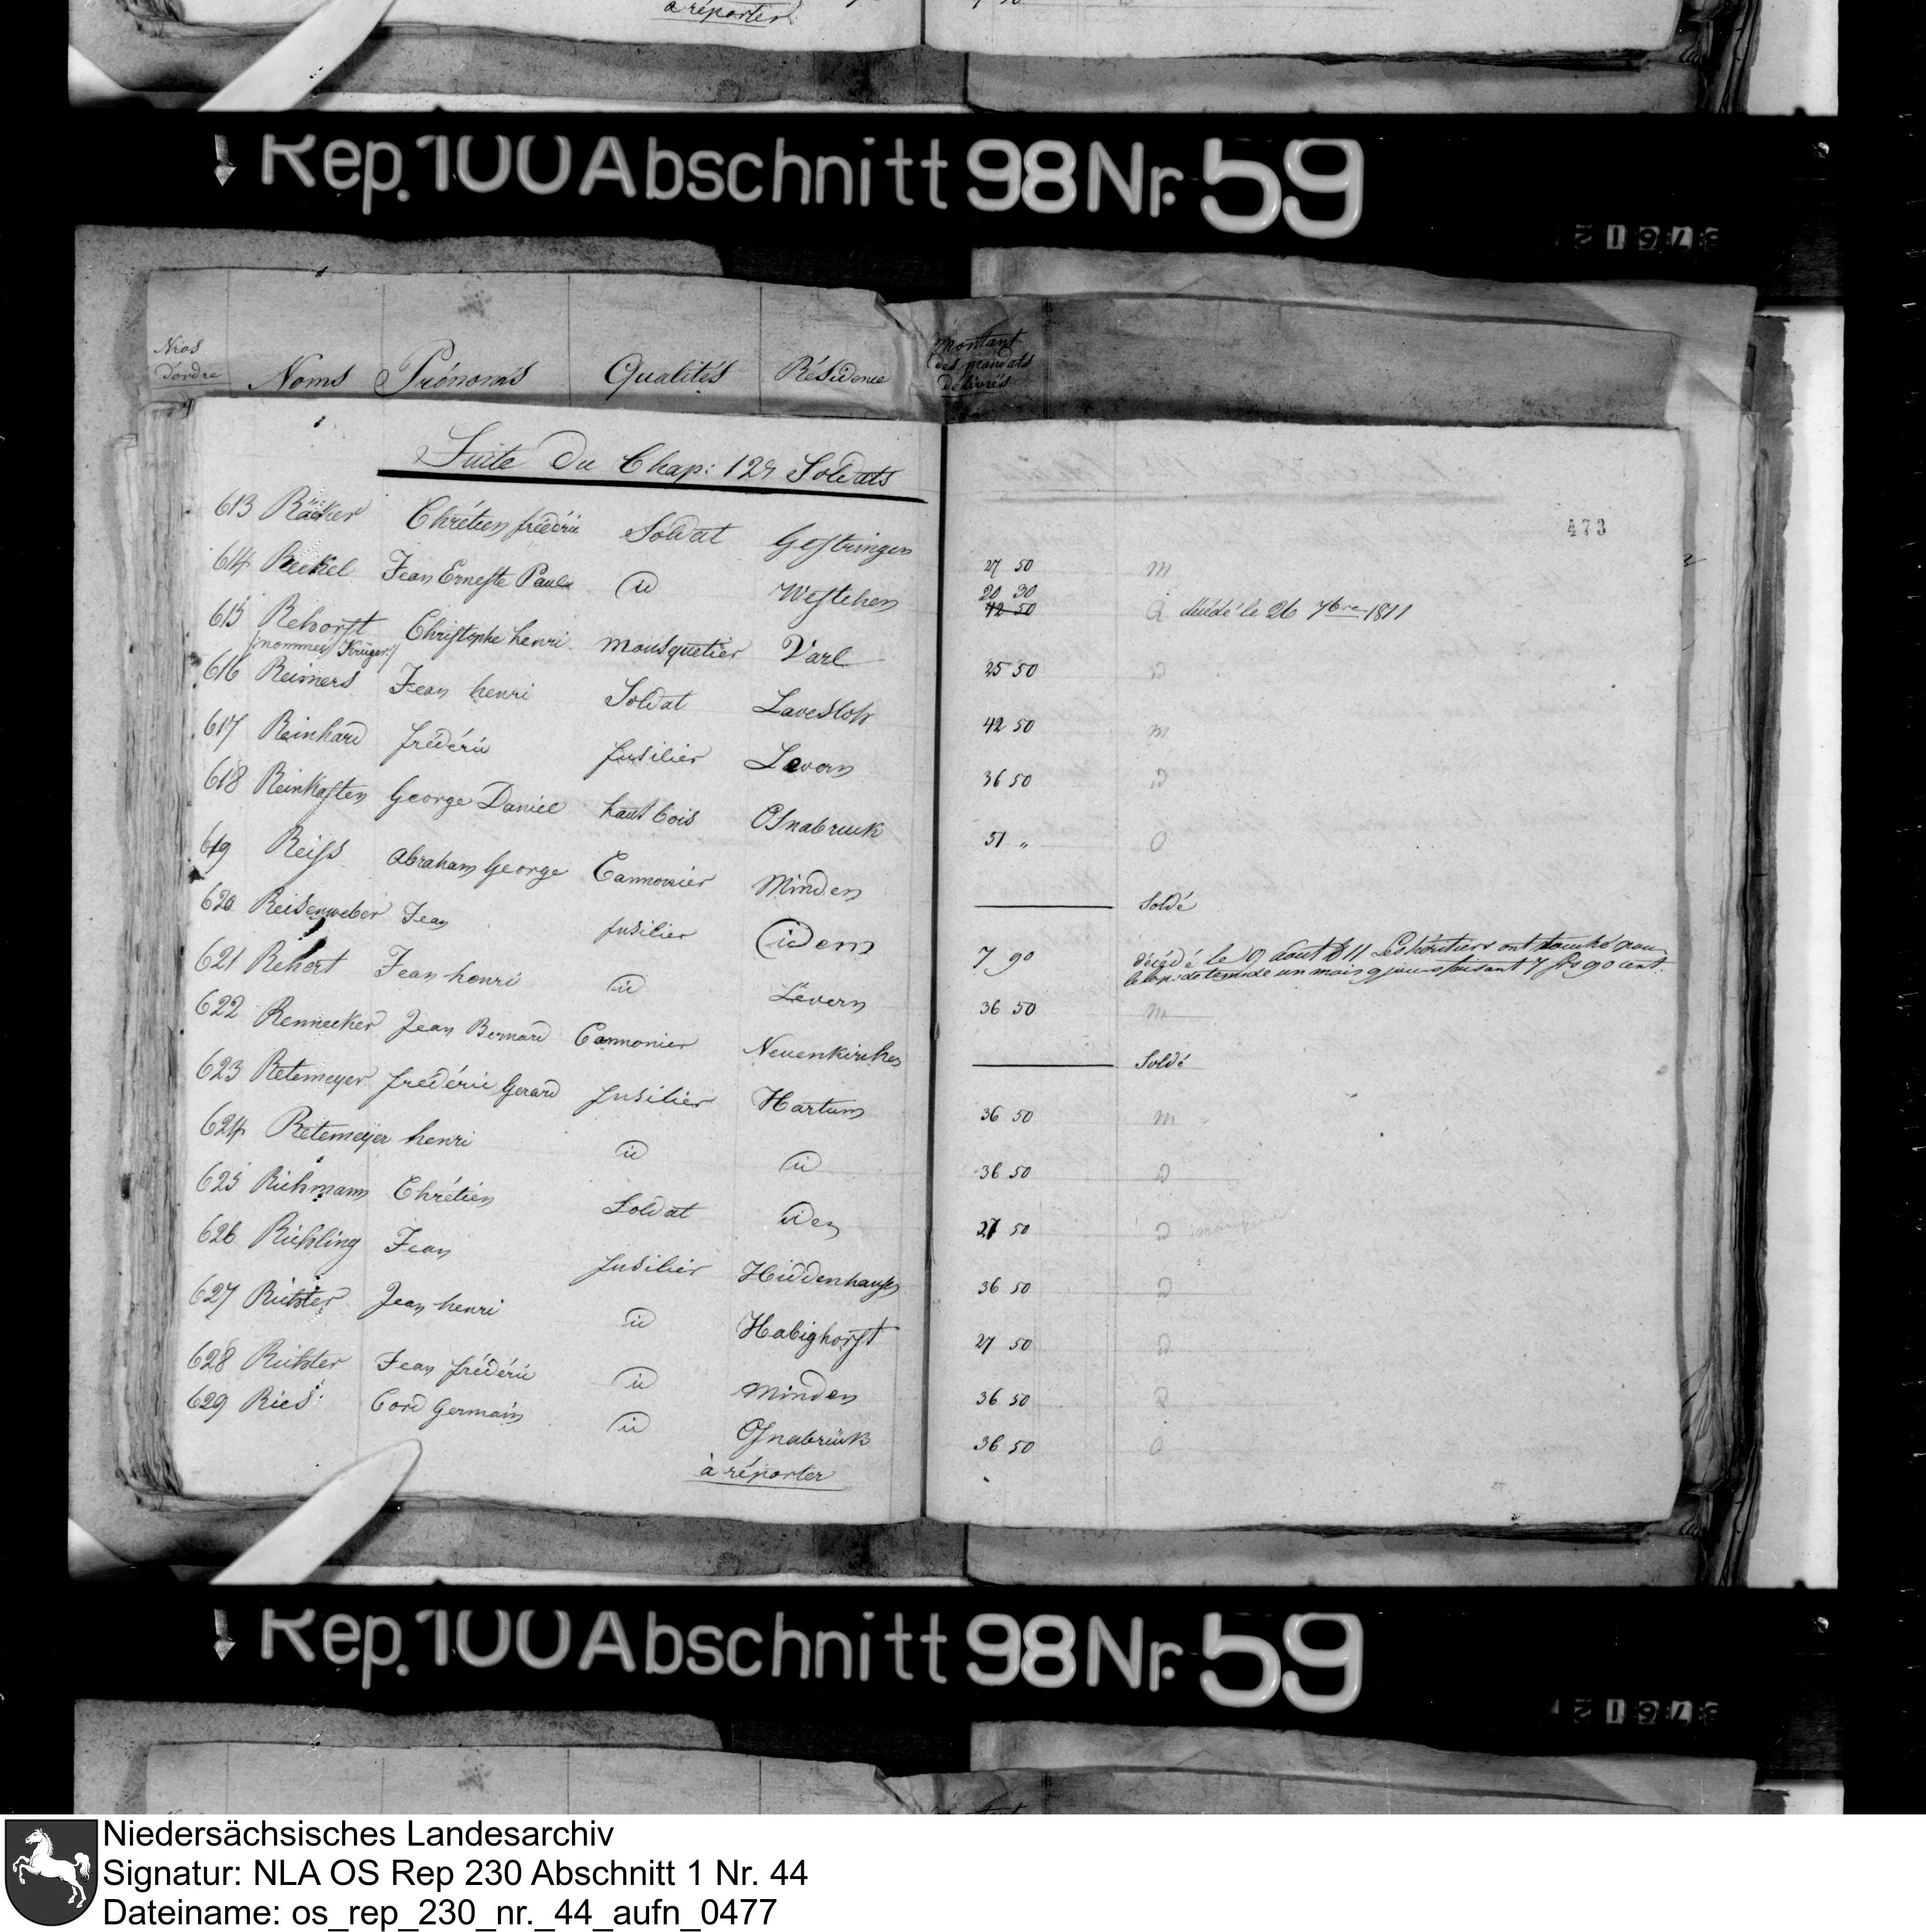 à réporter
Rep. 100 Abschnitt 98 Nr. 59
Nros d'ordre Noms Prénoms Qualités Résidence Montant des mandats délivrés
Suite du Chap: 129 Soldats
473
613 Räcker Chrétien frédéric Soldat Gestringen 27 50 m
614 Reckel Jean Erneste Paul id Westehen 20 30
42 50 O décédé le 26 7bre 1811
615 Rehorst Christophe henri Mousquetier Varl 25 50 D
(nommer Krüger)
616 Reimers Jean henri Soldat Lavesloh 42 50 m
617 Reinhard frédéric fusilier Levern 36 50 D
618 Reinkasten George Daniel hautbois Osnabruck 51 " O
619 Reiss Abraham George Cannonier Minden Soldé
620 Reisenweber Jean fusilier idem 7 90 décédé le 9 Aout 1811 Les héritiers ont touché pour
le laps de tems de un mois 9 jours faisant 7 frs 90 cent.
621 Rehert Jean henri id Levern 36 50 m
622 Rennecker Jean Bernard Cannonier Neuenkirchen Soldé
623 Retemeyer frédéric Gerard fusilier Hartum 36 50 m
624 Retemeyer henri id id 36 50 D
625 Richmann Chrétien Soldat idem 27 50 D
626 Richling Jean fusilier Hiddenhausen 36 50 D
627 Richter Jean henri id Habighorst 27 50 D
628 Richter Jean frédéric id Minden 36 50 D
629 Ries Cord Germain id Osnabrück 36 50 O
à réporter
Rep. 100 Abschnitt 98 Nr. 59
Niedersächsisches Landesarchiv
Signatur: NLA OS Rep 230 Abschnitt 1 Nr. 44
Dateiname: os_rep_230_nr._44_aufn_0477